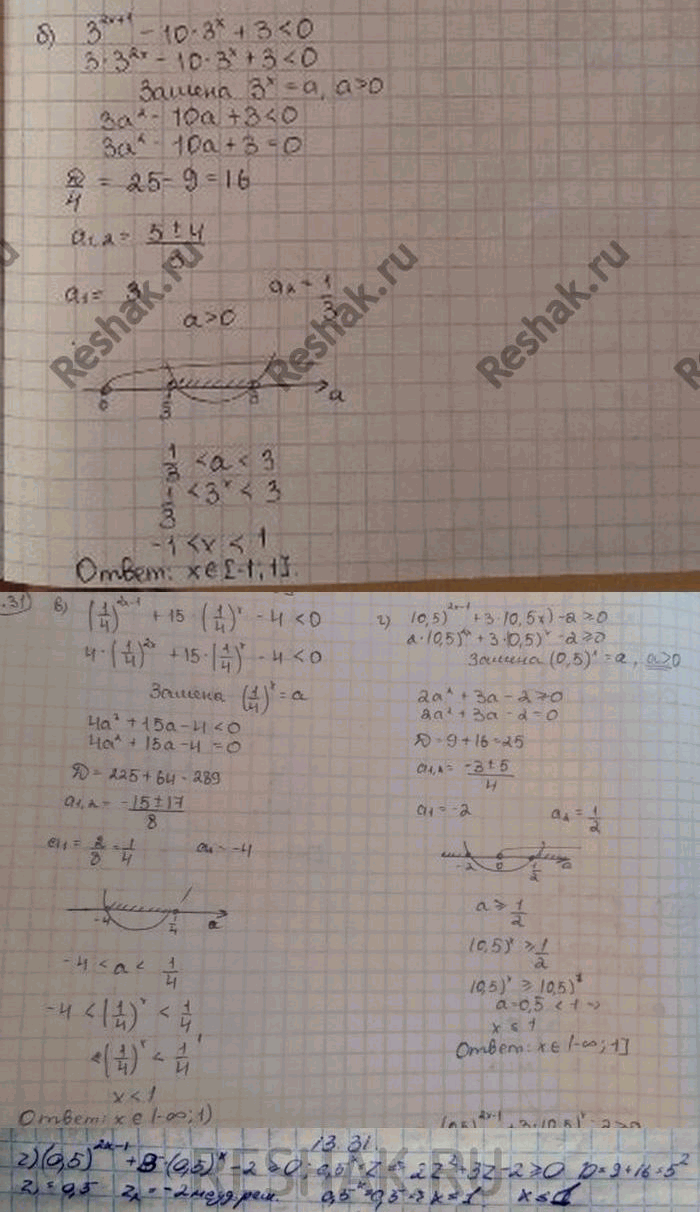 б) 3^{2x+1} - 10·3^x + 3 < 0
3·3^{2x} - 10·3^x + 3 < 0
Замена 3^x = a, a>0
3a² - 10a + 3 < 0
3a² - 10a + 3 = 0
D/4 = 25 - 9 = 16
a₁,₂ = (5 ± 4)/3
a₁ = 3 a₂ = 1/3
a>0
0 1/3 3 a
1/3 < a < 3
1/3 < 3^x < 3
-1 < x < 1
Ответ: x∈[-1; 1].
Reshak.ru
Reshak.ru
.31) в) (1/4)^{2x-1} + 15·(1/4)^x - 4 < 0
4·(1/4)^{2x} + 15·(1/4)^x - 4 < 0
Замена (1/4)^x = a
4a² + 15a - 4 < 0
4a² + 15a - 4 = 0
D = 225 + 64 = 289
a₁,₂ = (-15 ± 17)/8
a₁ = 2/8 = 1/4 a₂ = -4
-4 1/4 a
-4 < a < 1/4
-4 < (1/4)^x < 1/4
(1/4)^x < 1/4^1
x < 1
Ответ: x∈(-∞; 1)
г) (0,5)^{2x-1} + 3·(0,5x) - 2 ≥ 0
2·(0,5)^{2x} + 3·(0,5)^x - 2 ≥ 0
Замена (0,5)^x = a, a>0
2a² + 3a - 2 ≥ 0
2a² + 3a - 2 = 0
D = 9 + 16 = 25
a₁,₂ = (-3 ± 5)/4
a₁ = -2 a₂ = 1/2
-2 0 1/2 a
a ≥ 1/2
(0,5)^x ≥ 1/2
(0,5)^x ≥ (0,5)^1
a = 0,5 < 1 =>
x ≤ 1
Ответ: x∈(-∞; 1]
13.31.
г) (0,5)^{2x-1} + 3·(0,5)^x - 2 ≥ 0; 0,5^x = z => 2z² + 3z - 2 ≥ 0 D = 9 + 16 = 5²
z₁ = 0,5 z₂ = -2 0,5^x = 0,5 => x = 1. x ≤ 1
RESHAK.RU